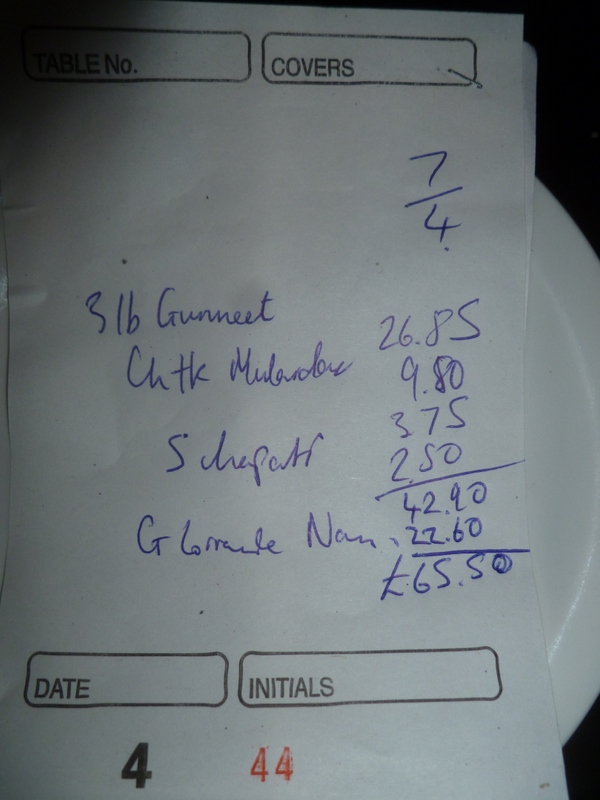 TABLE No.
COVERS
7/4
3 lb Gurmeet
26.85
Ch tk
9.80
3.75
5 chapati
2.50
42.90
G Nan
22.60
£65.50
DATE
INITIALS
4
44